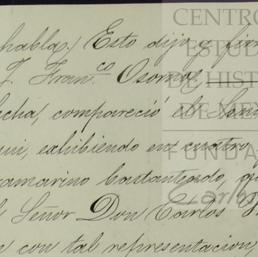 habla.) Esto dijo y fir
J. Fran.co Osorno,
echa, compareció el
ui, exhibiendo en cuatro
ramarino bastanteado, q
l Señor Don Carlos
e con tal representacion,
CENTRO
ESTUD
DE HIST
DE MÉX
FUNDA
Carlos